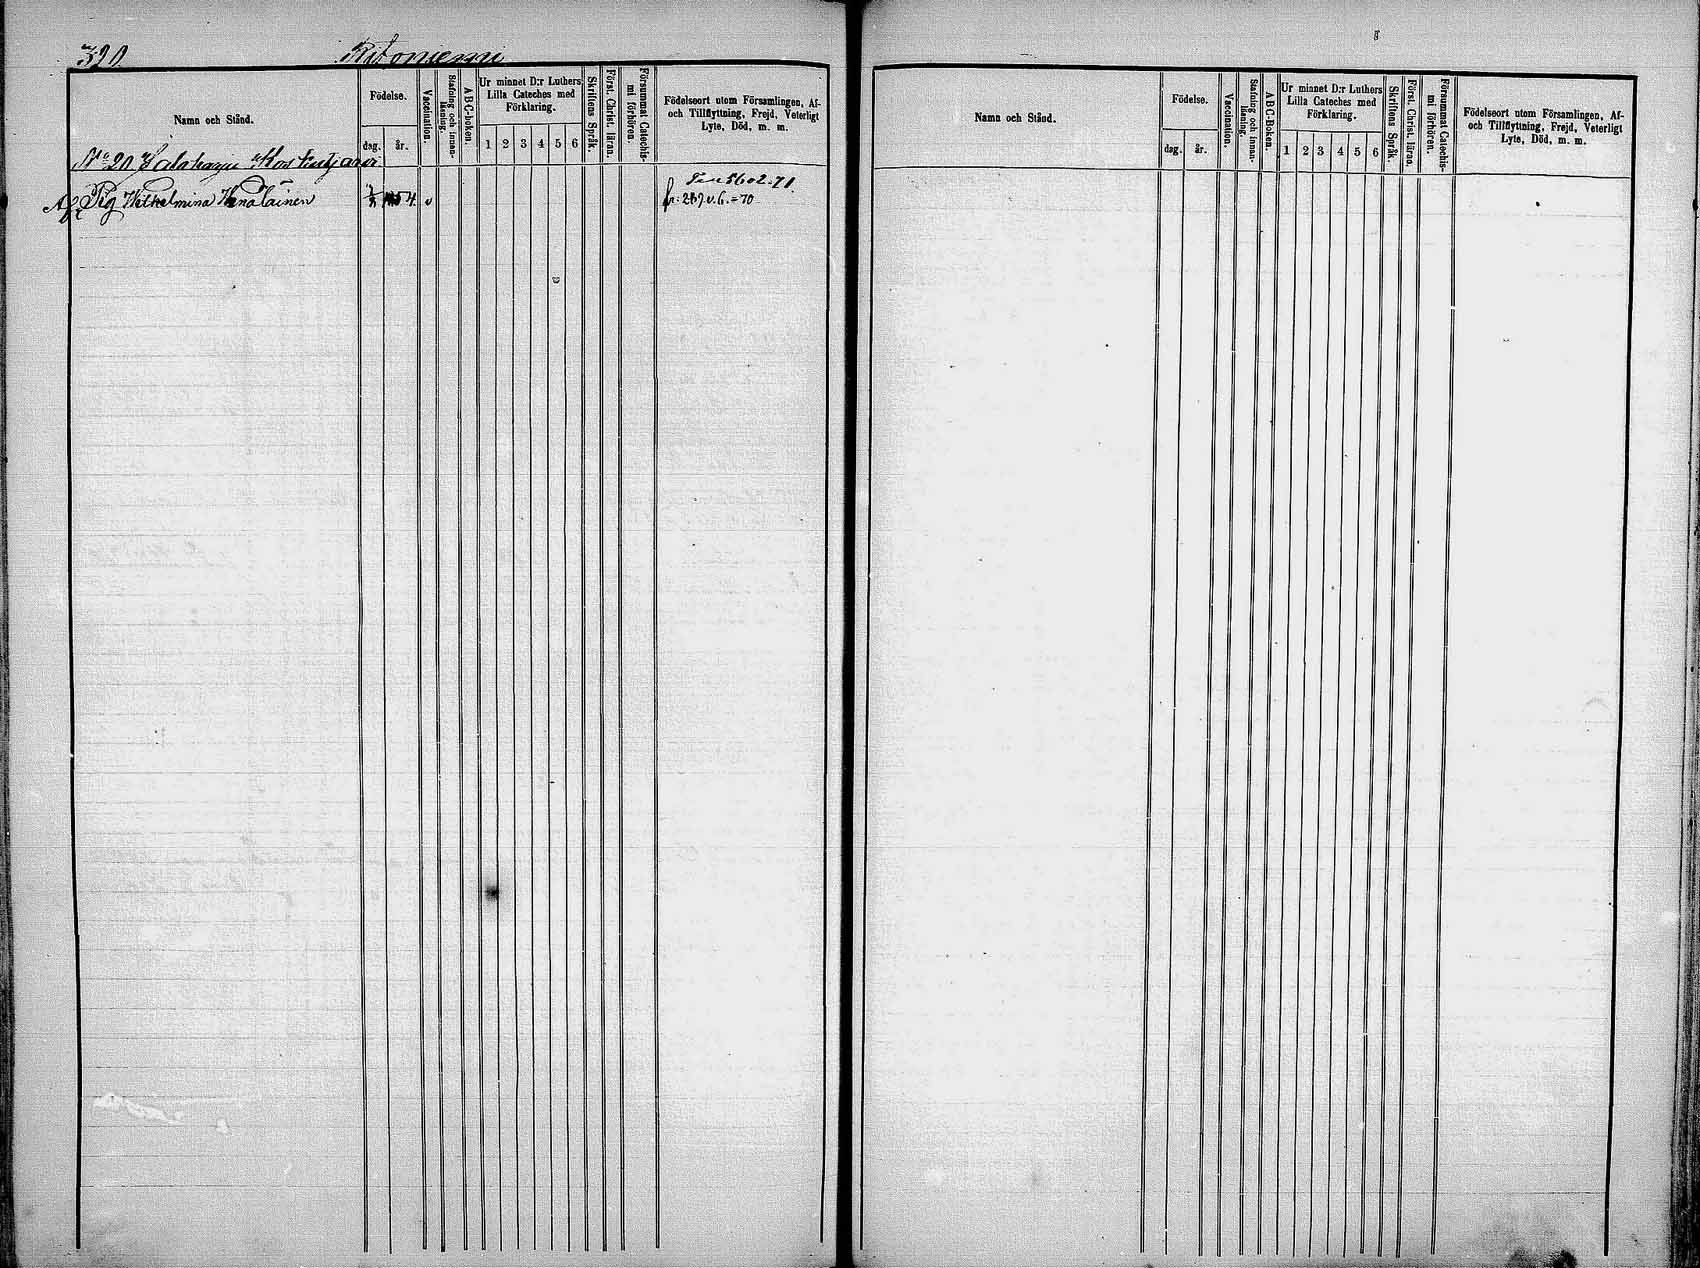 320. Ritoniemi
Namn och Stånd.
Födelse.
dag. år.
Vaccination.
Stafning och innan-
läsning.
ABC-boken.
Ur minnet D:r Luthers
Lilla Cateches med
Förklaring.
1 2 3 4 5 6
Skriftens Språk.
Först. Christ. läran.
Försummat Catechis-
mi förhören.
Födelseort utom Församlingen, Af-
och Tillflyttning, Frejd, Veterligt
Lyte, Död, m. m.
No 20
Pig Wilhelmina Venäläinen
v
fr. v. 6. = 70
Namn och Stånd.
Födelse.
dag. år.
Vaccination.
Stafning och innan-
läsning.
ABC-Boken.
Ur minnet D:r Luthers
Lilla Cateches med
Förklaring.
1 2 3 4 5 6
Skriftens Språk.
Först. Christ. läran.
Försummat Catechis-
mi förhören.
Födelseort utom Församlingen, Af-
och Tillflyttning, Frejd, Veterligt
Lyte, Död, m. m.